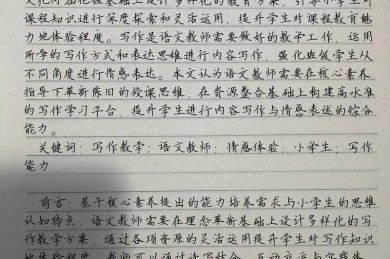 课程知识进行深度探索和灵活运用，提升学生对课程教育魅
力地体验程度。写作是语文教师需要做好的教学工作，运用
所学的写作方式和表达思维进行内容写作，强化班级学生从
不同角度进行情感表达。本文认为语文教师需要在核心素养
指导下革新陈旧的授课思维，在资源整合基础上构建高水准
的写作学习平台，提升学生进行内容写作与情感表述的综合
能力。
关键词：写作教学；语文教师；情感体验；小学生；写作
能力
前言：基于核心素养提出的能力培养需求与小学生的思维
认知特点，语文教师需要在理念革新基础上设计多样化的写
作教学方案，通过各项资源的灵活运用提升学生对写作知识
地体验程度。教师可以通过读写结合、互动交流与实践体